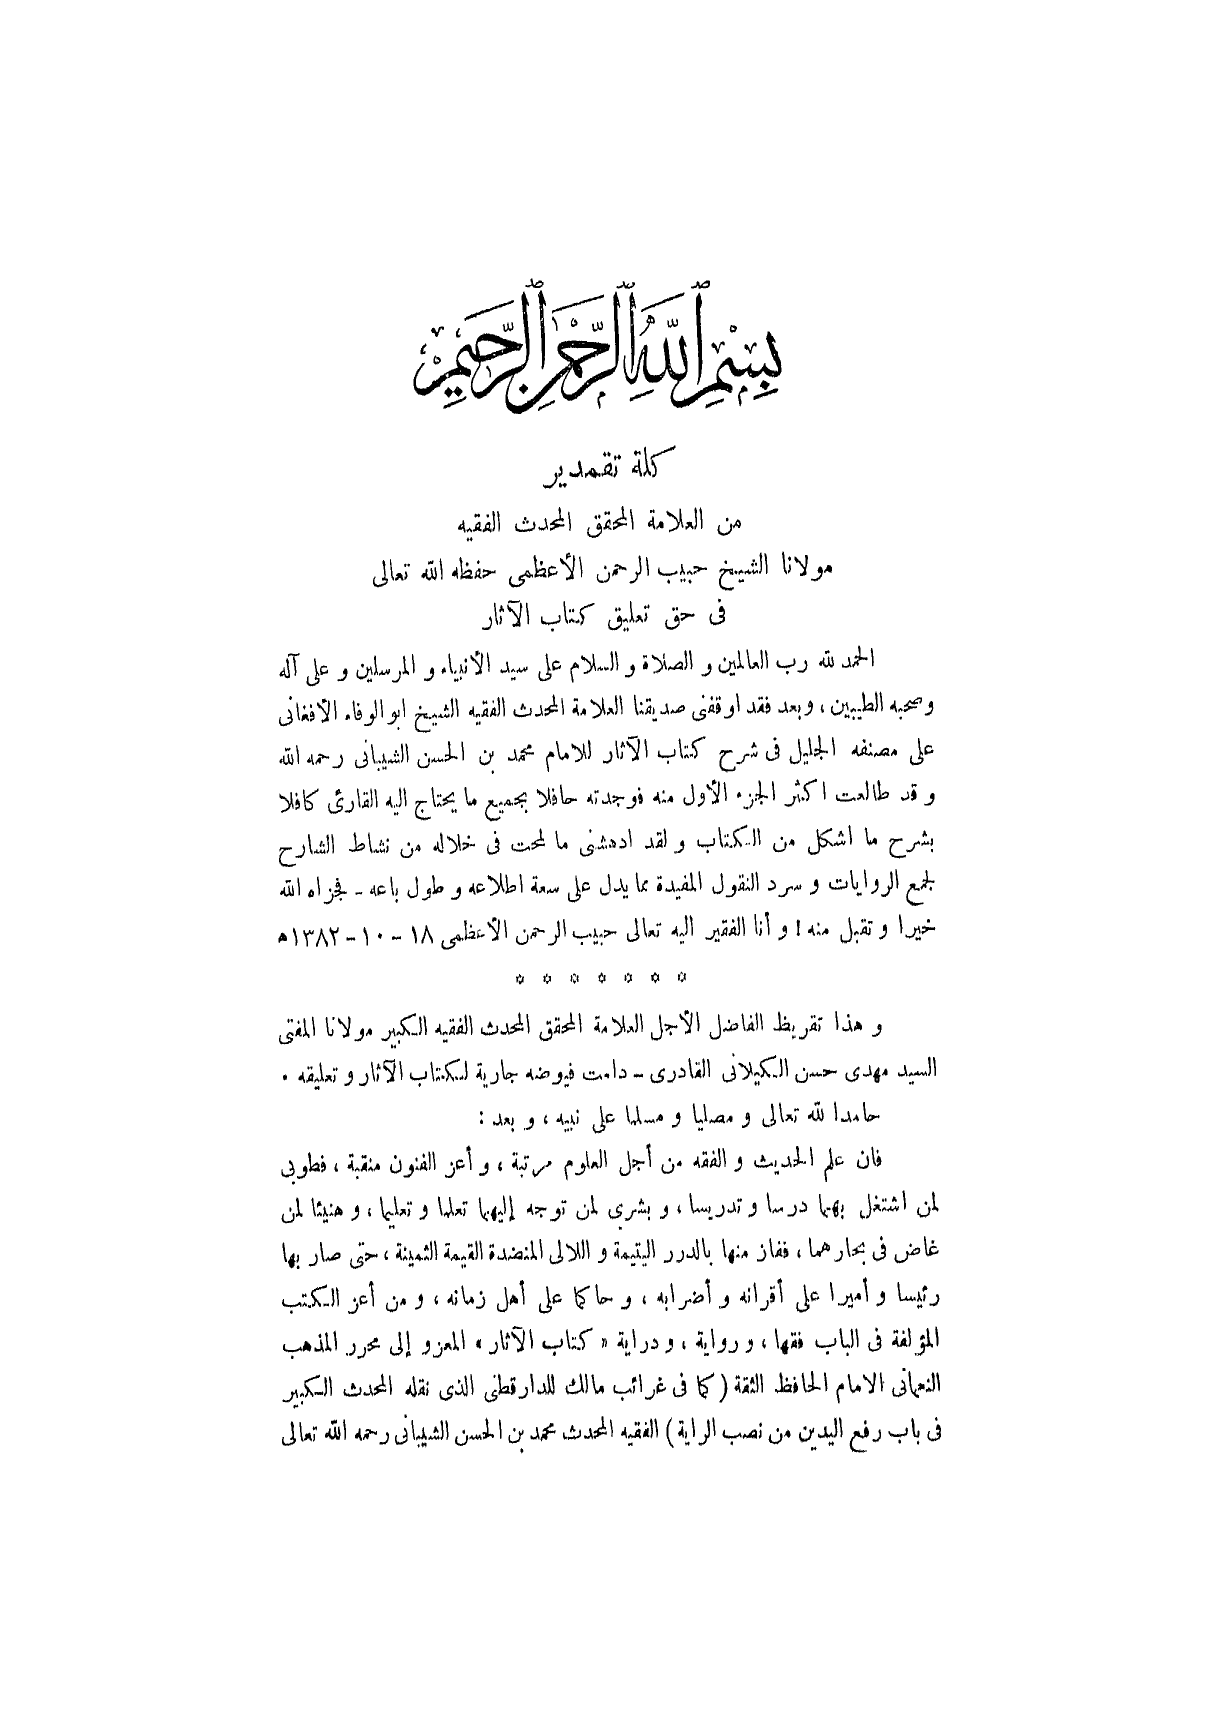 بِسْمِ ٱللَّهِ ٱلرَّحْمَٰنِ ٱلرَّحِيمِ
كلمة تقدير
من العلامة المحقق المحدث الفقيه
مولانا الشيخ حبيب الرحمن الأعظمى حفظه الله تعالى
فى حق تعليق كتاب الآثار
الحمد لله رب العالمين و الصلاة و السلام على سيد الأنبياء و المرسلين و على آله
وصحبه الطيبين ، وبعد فقد اوقفنى صديقنا العلامة المحدث الفقيه الشيخ ابو الوفاء الأفغانى
على مصنفه الجليل فى شرح كتاب الآثار للامام محمد بن الحسن الشيبانى رحمه الله
و قد طالعت اكثر الجزء الأول منه فوجدته حافلا بجميع ما يحتاج اليه القارئ كافلا
بشرح ما اشكل من الكتاب و لقد ادهشنى ما لمحت فى خلاله من نشاط الشارح
لجمع الروايات و سرد النقول المفيدة مما يدل على سعة اطلاعه و طول باعه ـ فجزاه الله
خيرا و تقبل منه ! و أنا الفقير اليه تعالى حبيب الرحمن الأعظمى ١٨ - ١٠ - ١٣٨٢ه
✡ ✡ ✡ ✡ ✡ ✡ ✡
و هذا تقريظ الفاضل الأجل العلامة المحقق المحدث الفقيه الكبير مولانا المفتى
السيد مهدى حسن الكيلانى القادرى ـ دامت فيوضه جارية لكتاب الآثار و تعليقه .
حامدا لله تعالى و مصليا و مسلما على نبيه ، و بعد :
فان علم الحديث و الفقه من أجل العلوم مرتبة ، و أعز الفنون منقبة ، فطوبى
لمن اشتغل بهما درسا و تدريسا ، و بشرى لمن توجه إليهما تعلما و تعليما ، و هنيئا لمن
غاص فى بحارهما ، ففاز منها بالدرر اليتيمة و اللالى المنضدة القيمة الثمينة ، حتى صار بها
رئيسا و أميرا على أقرانه و أضرابه ، و حاكما على أهل زمانه ، و من أعز الكتب
المؤلفة فى الباب فقها ، و رواية ، و دراية « كتاب الآثار » المعزو إلى محرر المذهب
النعمانى الامام الحافظ الثقة ( كما فى غرائب مالك للدارقطنى الذى نقله المحدث الكبير
فى باب رفع اليدين من نصب الراية ) الفقيه المحدث محمد بن الحسن الشيبانى رحمه الله تعالى